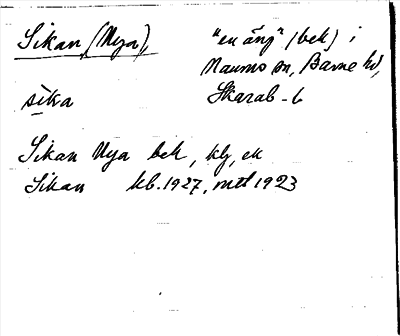 Sikan, (Nya), "en äng" (bek) i
Naums sn, Barne hd,
sika Skarab-l
Sikan Nya bek, klj, ek
Sikan kb. 1927, mtl 1923